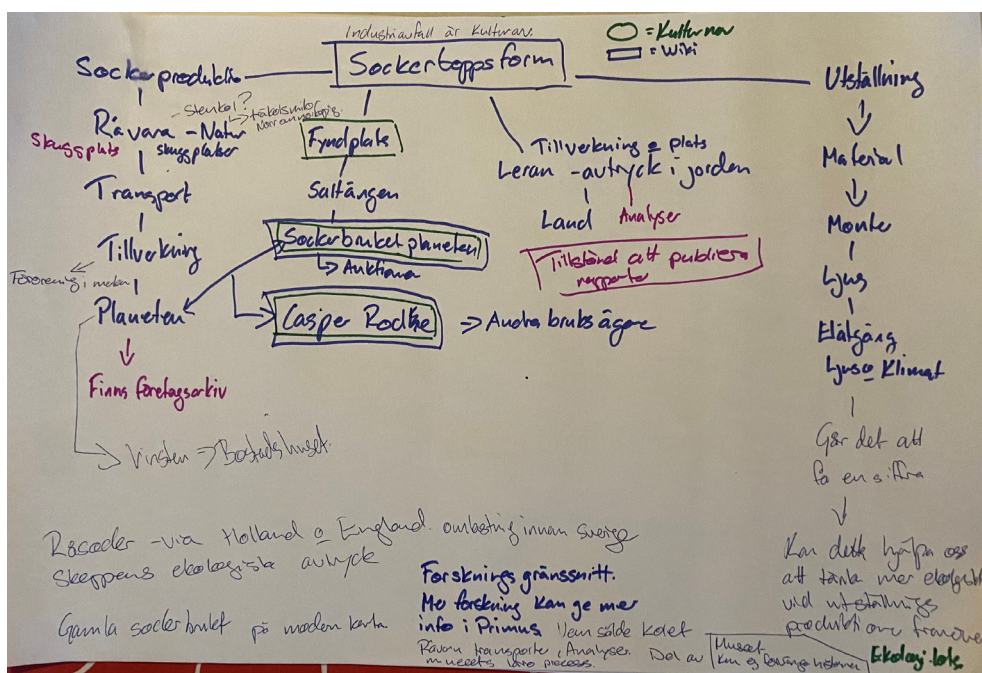 Industriavfall är kulturarv.
Sockertoppsform
= Kulturnav
= Wiki
Sockerproduktio
Råvara - Natur
- Stenkol?
skuggplatser
Skuggplats
Transport
Tillverkning
Förorening i marken
Planeten
Finns företagsarkiv
Vinsten => Bostadshuset.
Fyndplats
Saltängen
Sockerbruket planeten
Auktion
Casper Rodhe
=> Andra bruksägare
Tillverkning o plats
Leran - avtryck i jorden
Land
Analyser
Tillstånd att publicera
rapporter
Utställning
Material
Monter
Ljus
Elåtgång
Ljus o Klimat
Går det att
få en siffra
Kan detta hjälpa oss
att tänka mer ekologiskt
vid utställnings
produktioner framöver
Råsocker - via Holland o England. omlastning innan Sverige
Skeppens ekologiska avtryck
Gamla sockerbruket på modern karta
Forsknings gränssnitt.
Mer forskning kan ge mer
info i Primus
Vem sålde kolet
Råvaru transporter, Analyser
museets
process.
Del av
Museet
Ekologi